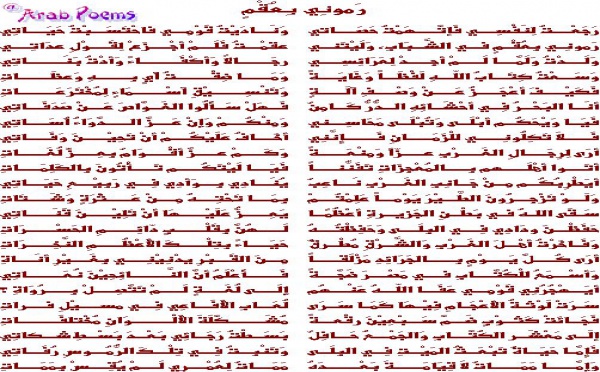 Arab Poems
رموني بعقم
رجعت لنفسي فاتهمت حصاتي وناديت قومي فاحتسبت حياتي
رموني بعقم في الشباب، وليتني عقمت فلم أجزع لقول عداتي
ولدت ولما لم أجد لعرائسي رجالا وأكفاء وأدت بناتي
وسعت كتاب الله لفظا وغاية وما ضقت آي به وعظات
فكيف عن وصف آلة وتنسيق أسماء لمخترعات
أنا البحر في أحشائه الدر كامن فهل سألوا الغواص عن صدفاتي
فيا ويحكم أبلى وتبلى محاسني ومنكم وإن عز الدواء أساتي
فلا تكلوني للزمان فإنني أخاف عليكم أن تحين وفاتي
أرى لرجال الغرب عزا ومنعة وكم عز أقوام بعز لغات
أتوا أهلهم بالمعجزات تفننا فيا ليتكم تأتون بالكلمات
أيطربكم من جانب الغرب ناعب ينادي بوأدي في ربيع حياتي
ولو تزجرون الطير يوما علمتم بما تحته من عثرة وشتات
سقى الله في بطن الجزيرة أعظما يعز عليها أن تلين قناتي
حفظن ودادي في البلى وحفظته لهن بقلب دائم الحسرات
وفاخرت أهل الغرب والشرق مطرق حياء بتلك الأعظم النخرات
أرى كل يوم بالجرائد مزلقا من القبر يدنيني بغير أناة
وأسمع للكتاب في مصر ضجة فأعلم أن الصائحين نعاتي
أيهجرني قومي عفا الله عنهم إلى لغة لم تتصل برواة ؟
سرت لوثة الأعجام فيها كما سرى لعاب الأفاعي في مسيل فرات
فجاءت كثوب ضم سبعين رقعة مشكلة الألوان مختلفات
إلى معشر الكتاب والجمع حافل بسطت رجائي بعد بسط شكاتي
فإما حياة تبعث الميت في البلى وتنبت في تلك الرموس رفاتي
وإما ممات لا قيامة بعده ممات لعمري لم يقس بممات